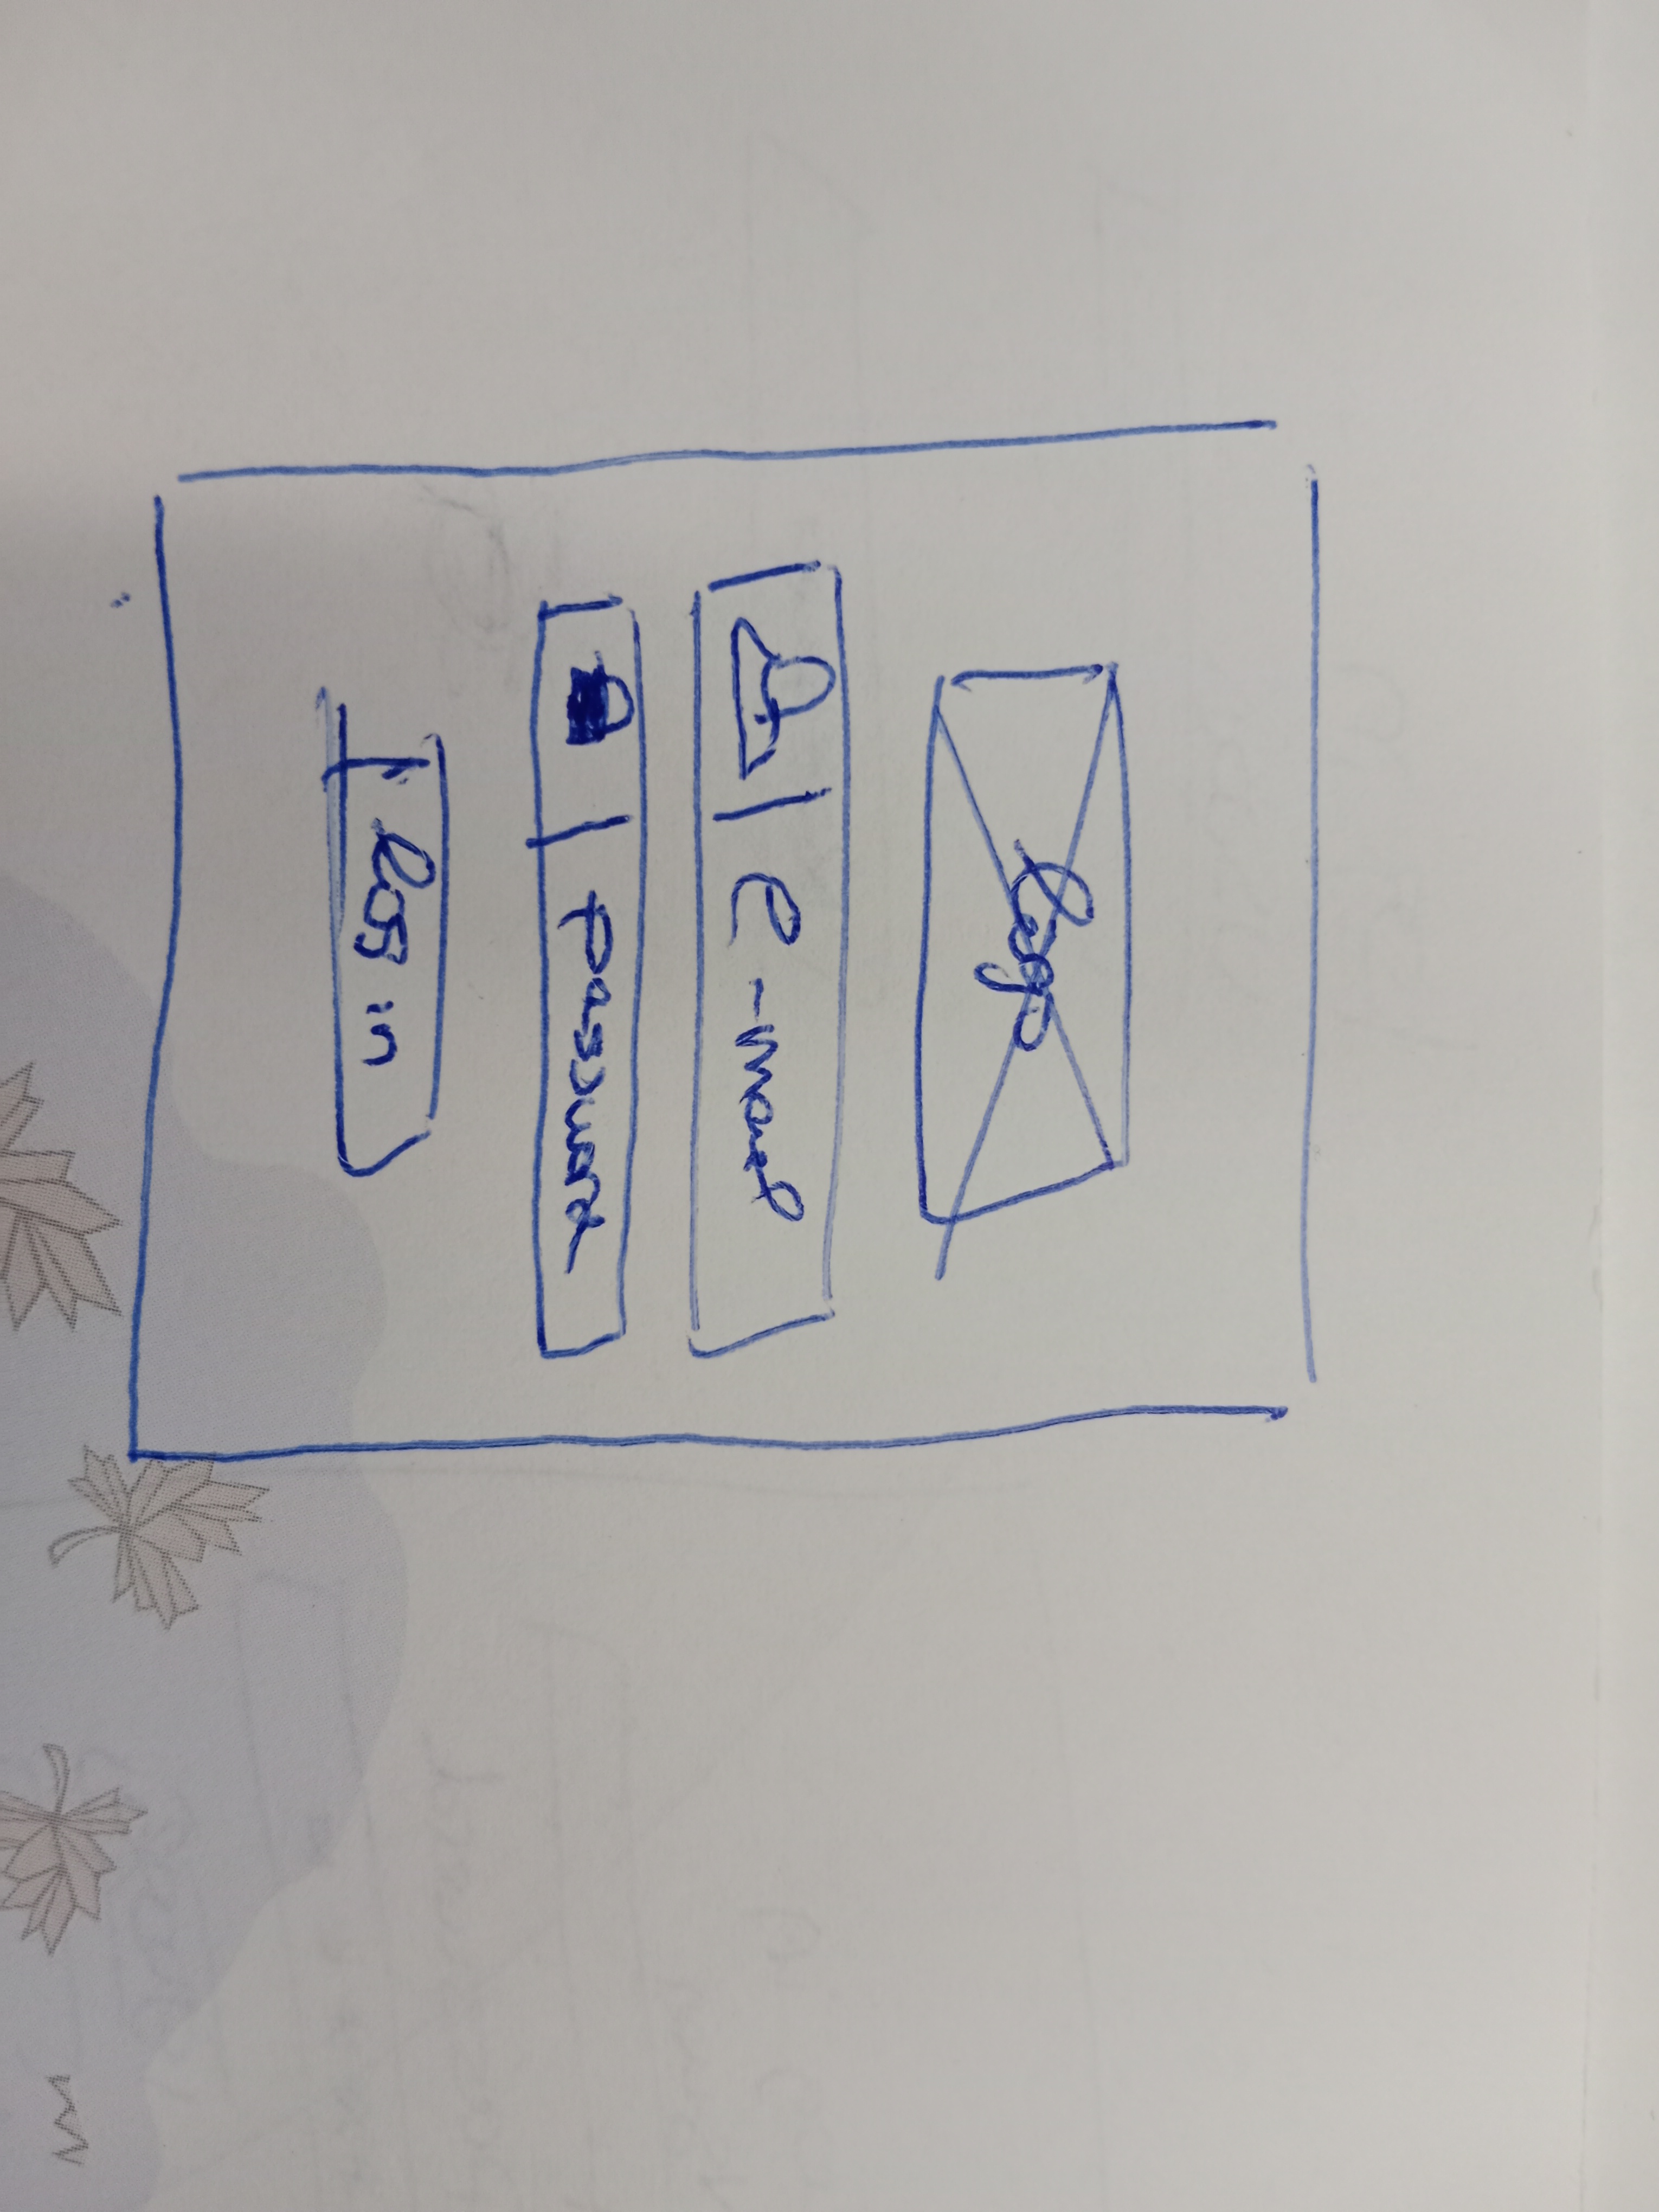 logo
e-mail
password
log in